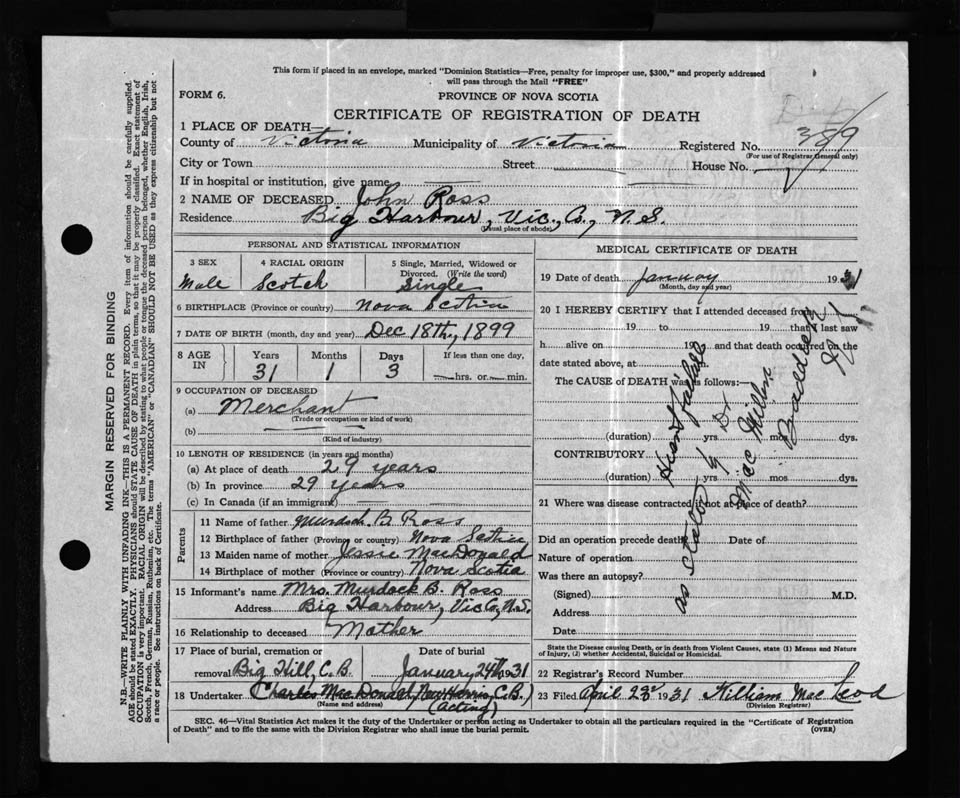 This form if placed in an envelope, marked "Dominion Statistics—Free, penalty for improper use, $300," and properly addressed
will pass through the Mail "FREE"
FORM 6.
PROVINCE OF NOVA SCOTIA
CERTIFICATE OF REGISTRATION OF DEATH
1 PLACE OF DEATH—
County of Victoria Municipality of Victoria Registered No. 389
(For use of Registrar General only)
City or Town Street House No.
If in hospital or institution, give name
2 NAME OF DECEASED John Ross
Residence Big Harbour, Vic, Co, N. S.
(Usual place of abode)
MARGIN RESERVED FOR BINDING
N.B.—WRITE PLAINLY WITH UNFADING INK—THIS IS A PERMANENT RECORD. Every item of information should be carefully supplied.
AGE should be stated EXACTLY. PHYSICIANS should STATE CAUSE OF DEATH in plain terms, so that it may be properly classified. Exact statement of
OCCUPATION is very important. RACIAL ORIGIN will be described by stating to what people or tongue the deceased person belonged, whether English, Irish,
Scotch, French, German, Russian, Ruthenian, etc. The terms "AMERICAN" or "CANADIAN" SHOULD NOT BE USED as they express citizenship but not
a race or people. See instructions on back of Certificate.
PERSONAL AND STATISTICAL INFORMATION
3 SEX 4 RACIAL ORIGIN 5 Single, Married, Widowed or
Divorced. (Write the word)
Male Scotch Single
6 BIRTHPLACE (Province or country) Nova Scotia
7 DATE OF BIRTH (month, day and year) Dec 18th, 1899
8 AGE IN Years Months Days If less than one day,
31 1 3 hrs. or min.
9 OCCUPATION OF DECEASED
(a) Merchant
(Trade or occupation or kind of work)
(b)
(Kind of industry)
10 LENGTH OF RESIDENCE (in years and months)
(a) At place of death 29 years
(b) In province 29 years
(c) In Canada (if an immigrant)
Parents
11 Name of father Murdoch B. Ross
12 Birthplace of father (Province or country) Nova Scotia
13 Maiden name of mother Jessie MacDonald
14 Birthplace of mother (Province or country) Nova Scotia
15 Informant's name Mrs. Murdock B. Ross
Address Big Harbour, Vic Co, N.S.
16 Relationship to deceased Mother
17 Place of burial, cremation or Date of burial
removal Big Hill, C.B. January 24th 1931
18 Undertaker Charles MacDonald, C.B.)
(Name and address) (acting)
MEDICAL CERTIFICATE OF DEATH
19 Date of death January 1931
(Month, day and year)
20 I HEREBY CERTIFY that I attended deceased from
19 to 19 that I last saw
h alive on 19 and that death occurred on the
date stated above, at
The CAUSE of DEATH was as follows:
(duration) yrs mos dys.
CONTRIBUTORY
(duration) yrs mos dys.
as stated by Dr
Mac Millan
Baddeck
21 Where was disease contracted if not at place of death?
Did an operation precede death? Date of
Nature of operation
Was there an autopsy?
(Signed) M.D.
Address
Date
State the Disease causing Death, or in death from Violent Causes, state (1) Means and
Nature of Injury, (2) whether Accidental, Suicidal or Homicidal.
22 Registrar's Record Number
23 Filed April 23rd 1931 William MacLeod
(Division Registrar)
SEC. 46—Vital Statistics Act makes it the duty of the Undertaker or person acting as Undertaker to obtain all the particulars required in the "Certificate of Registration
of Death" and to file the same with the Division Registrar who shall issue the burial permit. (OVER)